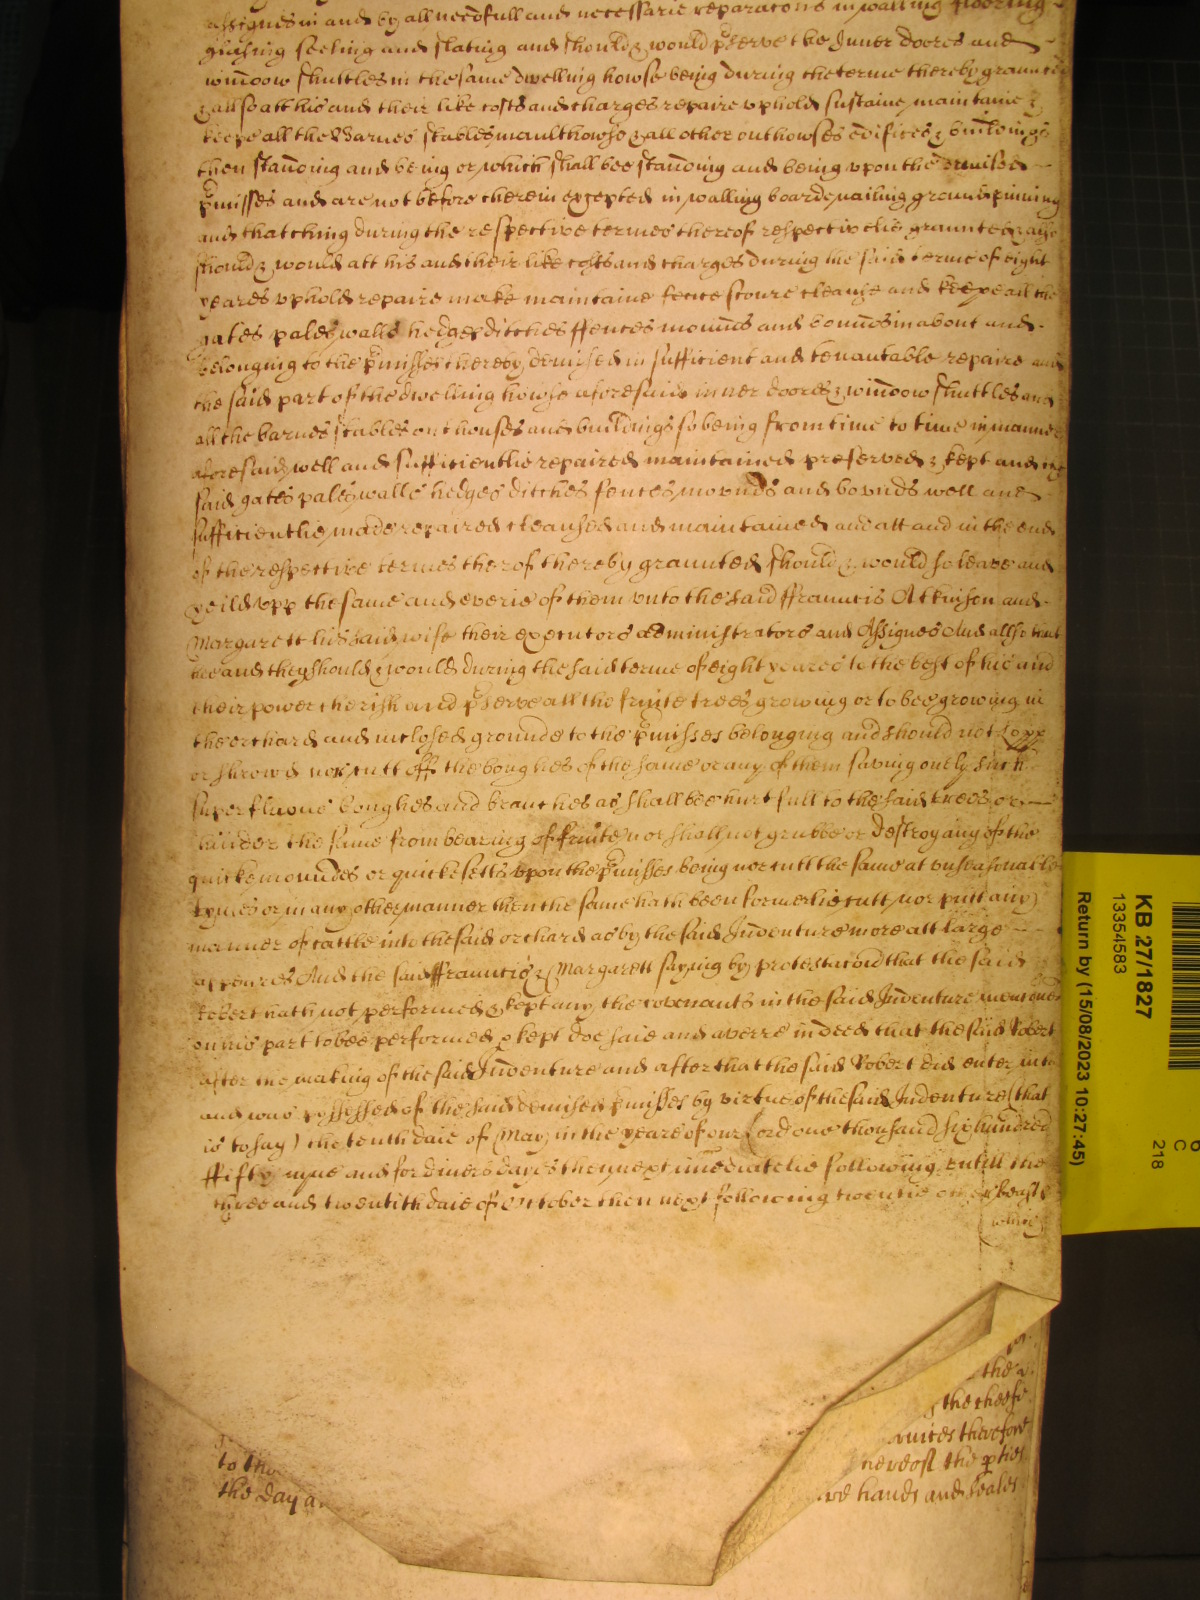 assignes in and by all needfull and necessarie reparacons in walling flooring
glasing seeling and slating and should & would pserve the Inner doores and
window shuttles in the same dwelling howse being during the terme thereby graunted
& allso att his and their like costs and charges repaire uphold sustaine maintaine &
keepe all the Barnes stables maulthowse & all other outhowses edifices & buildings
then standing and being or which shall bee standing and being upon the demised
pmisses and are not before therein excepted in walling boarde nailing groundpining
and thatching during the respective termes thereof respectivelie graunted & also
should & would att his and their like costs and charges during the said terme of eight
yeares uphold repaire make maintaine fence scoure cleanse and keepe all the
gates pales walls hedges ditches ffences mounds and bounds in about and
belonging to the pmisses thereby demised in sufficient and tenantable repaire and
the said part of the dwelling howse aforesaid inner doores & window shuttles and
all the barnes stables outhouses and buildings so being from time to time in manner
aforesaid well and sufficientlie repaired maintained preserved & kept and the
said gates pales walls hedges ditches fences mounds and bounds well and
sufficientlie made repaired cleansed and maintained and att and in the end
of the respective termes therof thereby graunted should & would so leave and
yeild upp the same and everie of them unto the said ffrauncis Atkinson and
Margarett his said wife their executors administrators and Assignes And allso that
hee and they should & would during the said terme of eight yeares to the best of his and
their power cherish and pserve all the fruite trees growing or to bee growing in
the orchard and inclosed grounde to the pmisses belonging and should not Lopp
or shrowd nor cutt off the boughes of the same or any of them saving onely such
superfluous boughes and branches as shall bee hurtfull to the said trees or
hinder the same from bearing of fruite nor shall not grubbe or destroy any of the
quicke moundes or quicksetts upon the pmisses being nor cutt the same at unseasonable
tymes or in any other manner then the same hath been formerlie cutt nor putt any
manner of cattle into the said orchard as by the said Indenture more att large
appeares And the said ffrauncis & Margarett saying by protestacon that the said
Robert hath not performed & kept any the covenants in the said Indenture mentioned
on his part to bee performed & kept doe saie and averre indeed that the said Robert
after the making of the said Indenture and after that the said Robert did enter into
and was possessed of the said demised pmisses by virtue of the said Indenture (that
is to say) the tenth daie of May in the yeare of our Lord one thousand six hundred
ffifty nyne and for divers dayes then next imediatelie following untill the
three and twentith daie of October then next following twentie other beasts
which
the
the these
therefore
whereof the pties
hands and seales
to the
the day a
KB 27/1827
13354583
Return by (15/08/2023 10:27:45)
C
218